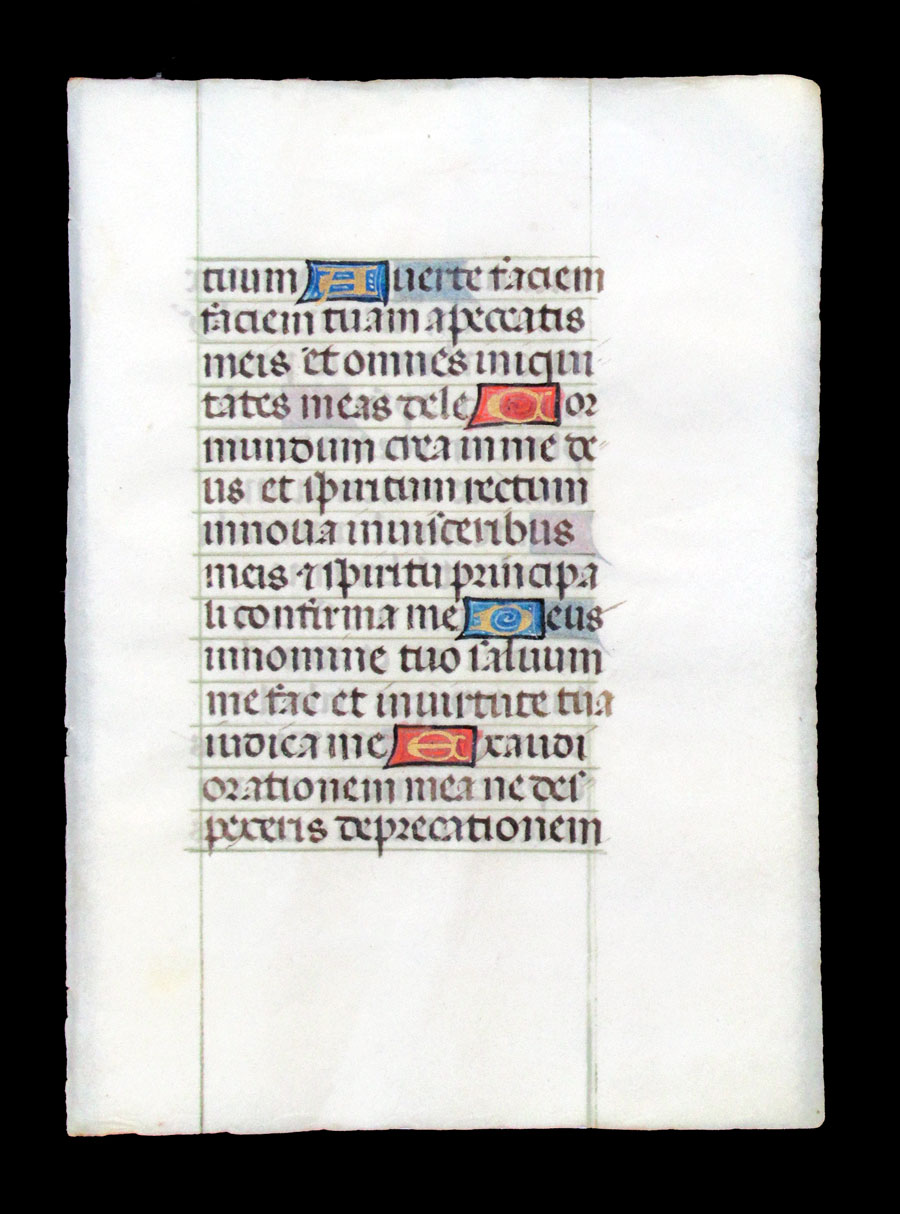 tuum Auerte faciem
faciem tuam a peccatis
meis et omnes iniqui
tates meas dele Cor
mundum crea in me de-
us et spiritum rectum
innoua in uisceribus
meis ⁊ spiritu principa
li confirma me Deus
in nomine tuo saluum
me fac et in uirtute tua
iudica me Exaudi
orationem mea ne des-
pexeris deprecationem